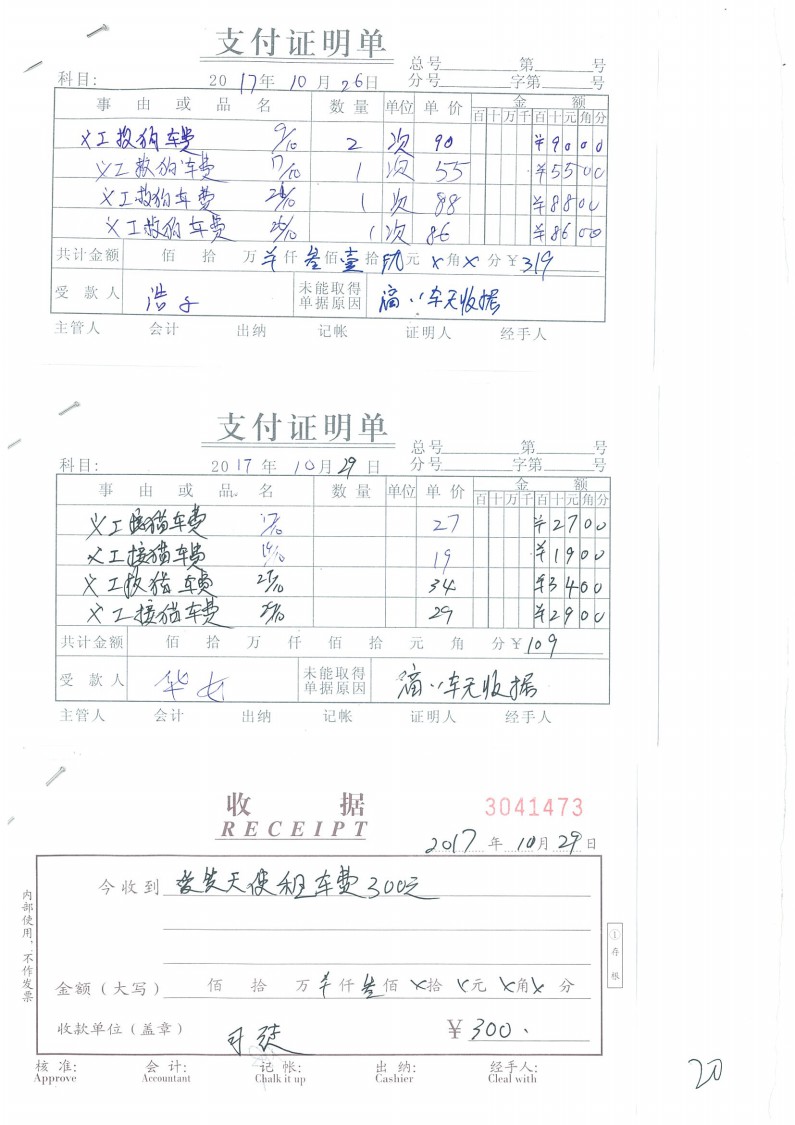 支付证明单
总号 第 号
科目: 2017年10月26日 分号 字第 号
事由或品名 数量 单位 单价 金额
百十万千百十元角分
义工救狗车费 9/10 2 次 90 ¥9000
义工救狗车费 17/10 1 次 55 ¥5500
义工救狗车费 1 次 88 ¥8800
义工救狗车费 1 次 86 ¥8600
共计金额 佰 拾 万 ¥仟 叁佰 壹拾 玖元 ×角 ×分 ¥319
受款人 浩子 未能取得单据原因 滴滴车无收据
主管人 会计 出纳 记帐 证明人 经手人
支付证明单
总号 第 号
科目: 2017年10月29日 分号 字第 号
事由或品名 数量 单位 单价 金额
百十万千百十元角分
义工接猫车费 27 ¥2700
义工接猫车费 19 ¥1900
义工救猫车费 34 ¥3400
义工接猫车费 29 ¥2900
共计金额 佰 拾 万 仟 佰 拾 元 角 分 ¥109
受款人 华女 未能取得单据原因 滴滴车无收据
主管人 会计 出纳 记帐 证明人 经手人
收据 3041473
RECEIPT
2017年10月29日
今收到 天使租车费300元
金额(大写) 佰 拾 万 ¥仟 叁佰 ×拾 ×元 ×角 ×分
收款单位(盖章) 司徒 ¥300.
核准: 会计: 记帐: 出纳: 经手人:
Approve Accountant Chalk it up Cashier Cleal with
内部使用,不作发票
①存根
20